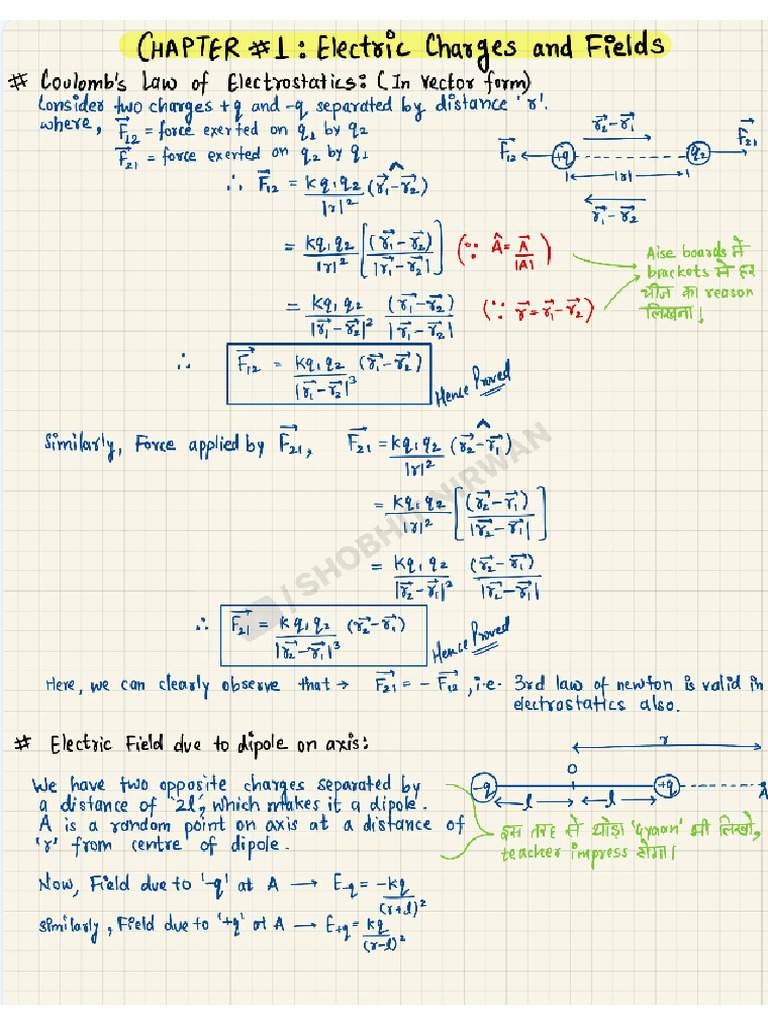 CHAPTER #1: Electric Charges and Fields
# Coulomb's Law of Electrostatics: (In vector form)
Consider two charges +q and -q separated by distance 'r'.
where, F⃗₁₂ = force exerted on q₁ by q₂
F⃗₂₁ = force exerted on q₂ by q₁
r⃗₂-r⃗₁
F⃗₁₂ +q q₂ F⃗₂₁
|r|
r⃗₁-r⃗₂
∴ F⃗₁₂ = kq₁q₂/|r|² (r⃗₁-r⃗₂)^
= kq₁q₂/|r|² [(r⃗₁-r⃗₂)/|r⃗₁-r⃗₂|] (∵ Â = A⃗/|A|)
= kq₁q₂/|r⃗₁-r⃗₂|² (r⃗₁-r⃗₂)/|r⃗₁-r⃗₂| (∵ r⃗ = r⃗₁-r⃗₂)
Aise boards में
brackets में हर
चीज का reason
लिखना!
∴ F⃗₁₂ = kq₁q₂/|r⃗₁-r⃗₂|³ (r⃗₁-r⃗₂)
Hence Proved
Similarly, Force applied by F⃗₂₁, F⃗₂₁ = kq₁q₂/|r|² (r⃗₂-r⃗₁)^
= kq₁q₂/|r|² [(r⃗₂-r⃗₁)/|r⃗₂-r⃗₁|]
= kq₁q₂/|r⃗₂-r⃗₁|² (r⃗₂-r⃗₁)/|r⃗₂-r⃗₁|
∴ F⃗₂₁ = kq₁q₂/|r⃗₂-r⃗₁|³ (r⃗₂-r⃗₁)
Hence Proved
/ SHOBHIT NIRWAN
Here, we can clearly observe that → F⃗₂₁ = - F⃗₁₂, i.e. 3rd law of newton is valid in
electrostatics also.
# Electric Field due to dipole on axis:
r
O
-q +q A
l l
We have two opposite charges separated by
a distance of '2l', which makes it a dipole.
A is a random point on axis at a distance of
'r' from centre of dipole.
इस तरह से थोड़ा 'Gyaan' भी लिखो,
teacher impress होगा।
Now, Field due to '-q' at A → E₋q = -kq/(r+l)²
similarly, Field due to '+q' at A → E₊q = kq/(r-l)²